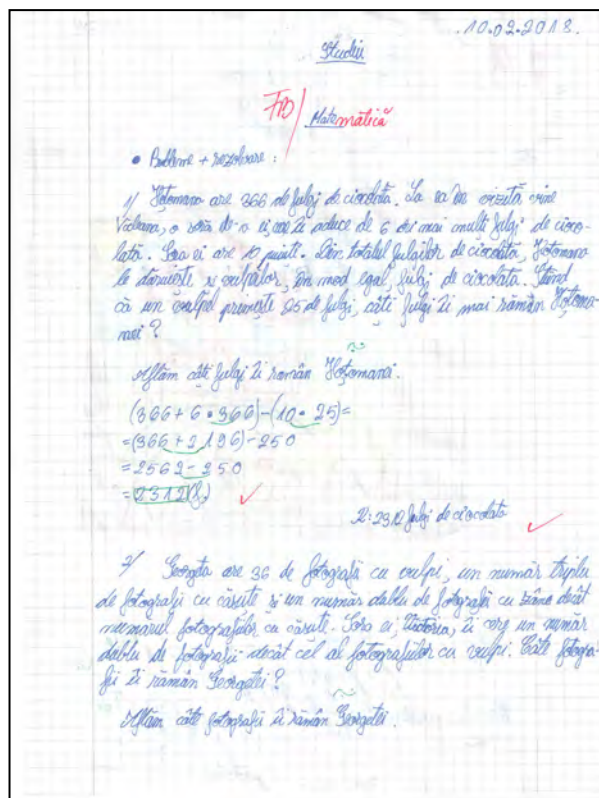 10.02.2018.
Studiu
FB/ Matematică
• Probleme + rezolvare :
1/ Hoțomana are 366 de fulgi de ciocolată. La ea în vizită vine
Vicleana, o soră de-a ei, care îi aduce de 6 ori mai mulți fulgi de cioco-
lată. Sora ei are 10 puiuti. Din totalul fulgilor de ciocolată, Hoțomana
le dăruiește și vulpilor, în mod egal, fulgi de ciocolată. Știind
că un vulpel primește 25 de fulgi, câți fulgi îi mai rămân Hoțoma-
nei ?
Aflăm câți fulgi îi rămân Hoțomanei.
(366 + 6 • 366) - (10 • 25) =
= (366 + 2196) - 250
= 2562 - 250
= 2312 (f.)
R: 2312 fulgi de ciocolată
2/ Georgeta are 36 de fotografii cu vulpi, un număr triplu
de fotografii cu căsuțe și un număr dablu de fotografii cu zâne decât
numărul fotografiilor cu căsuțe. Sora ei, Victoria, îi cere un număr
dablu de fotografii decât cel al fotografiilor cu vulpi. Câte fotogra-
fii îi rămân Georgetei ?
Aflăm câte fotografii îi rămân Georgetei.